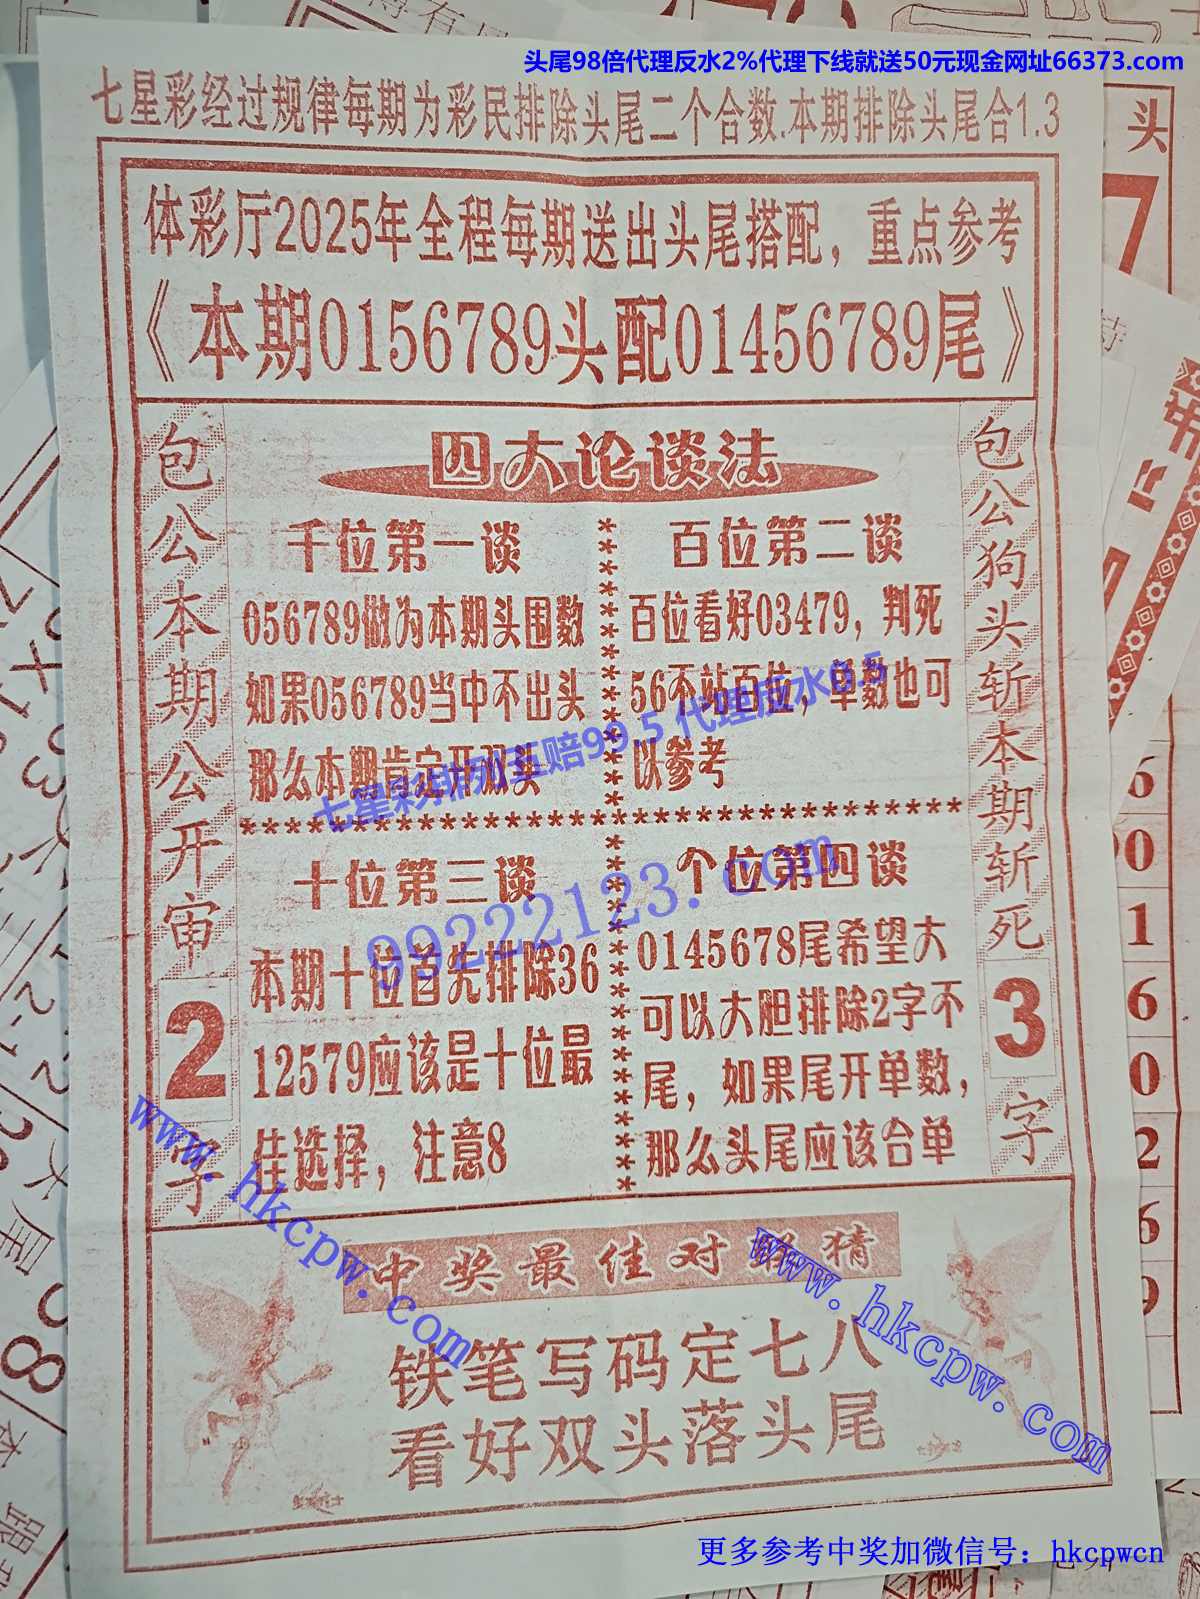 头尾98倍代理反水2%代理下线就送50元现金网址66373.com
七星彩经过规律每期为彩民排除头尾二个合数.本期排除头尾合1.3
体彩厅2025年全程每期送出头尾搭配，重点参考
《本期0156789头配01456789尾》
包公本期公开审2字
四大论谈法
千位第一谈
056789做为本期头围数
如果056789当中不出头
那么本期肯定开双头
百位第二谈
百位看好03479，判死
56不站百位，单数也可
以参考
十位第三谈
本期十位首先排除36
12579应该是十位最
佳选择，注意8
个位第四谈
0145678尾希望大
可以大胆排除2字不
尾，如果尾开单数，
那么头尾应该合单
包公狗头斩本期斩死3字
七星彩排列五赔99.5代理反水0.5
99222123.com
中奖最佳对联猜
铁笔写码定七八
看好双头落头尾
www.hkcpw.com
www.hkcpw.com
更多参考中奖加微信号：hkcpwcn
头
7
6
0
1
6
0
2
6
9